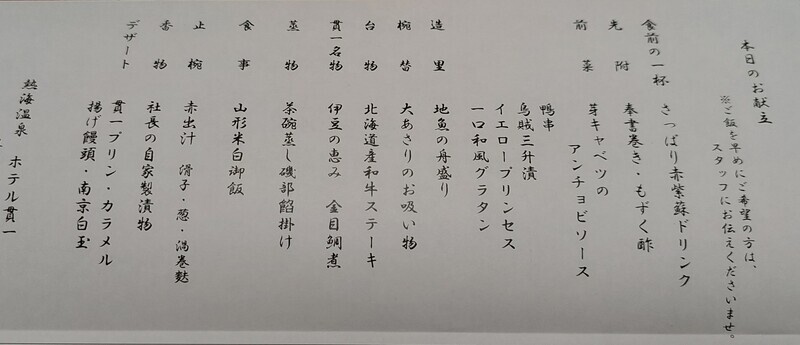 本日のお献立
※ご飯を早めにご希望の方は、
スタッフにお伝えくださいませ。
食前の一杯 さっぱり赤紫蘇ドリンク
先附 奉書巻き・もずく酢
前菜 芽キャベツの
アンチョビソース
鴨串
烏賊三升漬
イエロープリンセス
一口和風グラタン
造里 地魚の舟盛り
椀替 大あさりのお吸い物
台物 北海道産和牛ステーキ
貫一名物 伊豆の恵み 金目鯛煮
蒸物 茶碗蒸し磯部餡掛け
食事 山形米白御飯
止椀 赤出汁 滑子・葱・渦巻麩
香物 社長の自家製漬物
デザート 貫一プリン・カラメル
揚げ饅頭・南京白玉
熱海温泉 ホテル貫一